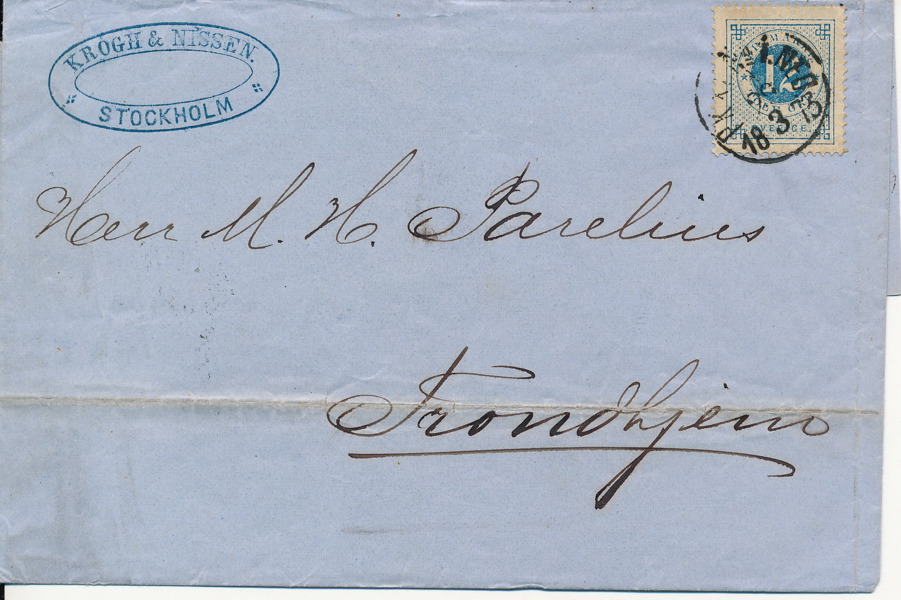 KROGH & NISSEN.
STOCKHOLM
12
18 3 73
Herr M. H. Parelius
Trondhjem